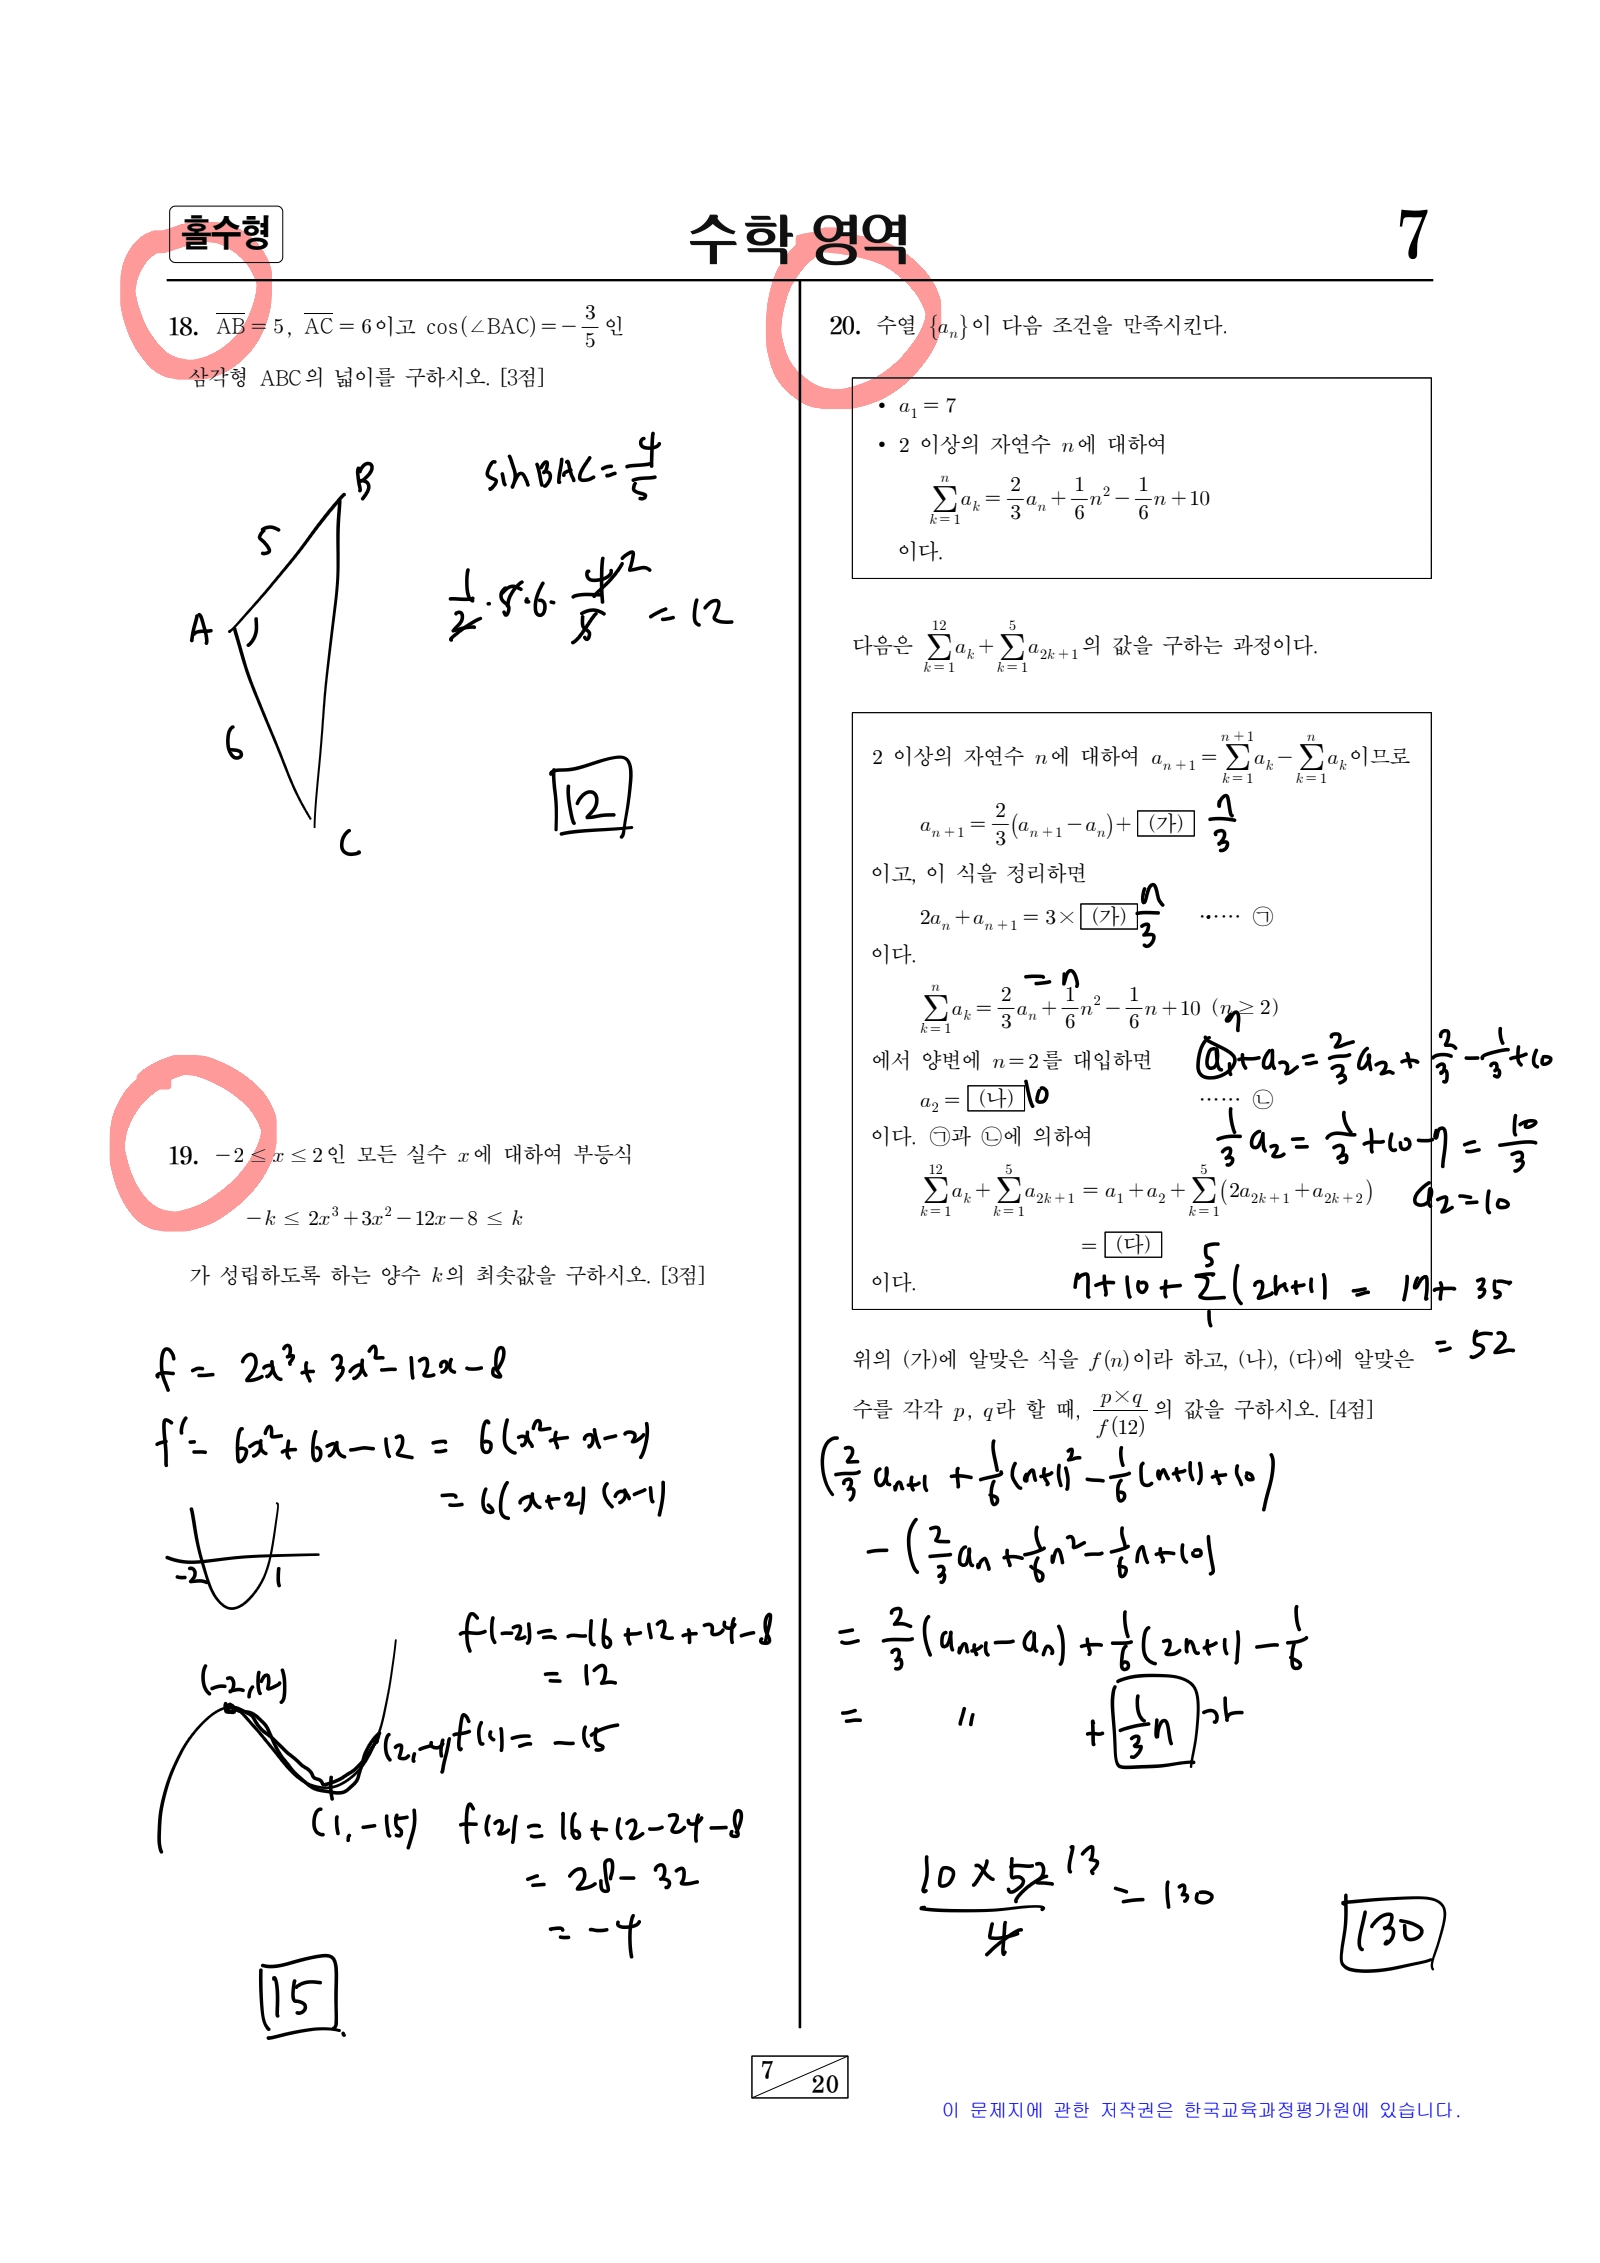 홀수형
수학 영역
7
18. AB = 5, AC = 6이고 cos(∠BAC) = -3/5 인
삼각형 ABC의 넓이를 구하시오. [3점]
B
5
A
6
C
sinBAC = 4/5
1/2 · 5 · 6 · 4/5 2 = 12
12
19. -2 ≤ x ≤ 2인 모든 실수 x에 대하여 부등식
-k ≤ 2x³ + 3x² - 12x - 8 ≤ k
가 성립하도록 하는 양수 k의 최솟값을 구하시오. [3점]
f = 2x³ + 3x² - 12x - 8
f' = 6x² + 6x - 12 = 6(x² + x - 2)
= 6(x+2)(x-1)
-2 1
f(-2) = -16 + 12 + 24 - 8
= 12
(-2, 12)
f(1) = -15
(2, -4)
(1, -15)
f(2) = 16 + 12 - 24 - 8
= 28 - 32
= -4
15
20. 수열 {aₙ}이 다음 조건을 만족시킨다.
• a₁ = 7
• 2 이상의 자연수 n에 대하여
∑_{k=1}^{n} a_k = 2/3 a_n + 1/6 n² - 1/6 n + 10
이다.
다음은 ∑_{k=1}^{12} a_k + ∑_{k=1}^{5} a_{2k+1}의 값을 구하는 과정이다.
2 이상의 자연수 n에 대하여 a_{n+1} = ∑_{k=1}^{n+1} a_k - ∑_{k=1}^{n} a_k 이므로
a_{n+1} = 2/3 (a_{n+1} - a_n) + (가) n/3
이고, 이 식을 정리하면
2a_n + a_{n+1} = 3 × (가) n/3 …… ㉠
이다.
= n
∑_{k=1}^{n} a_k = 2/3 a_n + 1/6 n² - 1/6 n + 10 (n ≥ 2)
에서 양변에 n = 2를 대입하면
7
a₁ + a₂ = 2/3 a₂ + 2/3 - 1/3 + 10
a₂ = (나) 10 …… ㉡
1/3 a₂ = 1/3 + 10 - 7 = 10/3
a₂ = 10
이다. ㉠과 ㉡에 의하여
∑_{k=1}^{12} a_k + ∑_{k=1}^{5} a_{2k+1} = a₁ + a₂ + ∑_{k=1}^{5} (2a_{2k+1} + a_{2k+2})
= (다)
이다.
7 + 10 + ∑_{1}^{5} (2k+1) = 17 + 35
= 52
위의 (가)에 알맞은 식을 f(n)이라 하고, (나), (다)에 알맞은
수를 각각 p, q라 할 때, p×q/f(12) 의 값을 구하시오. [4점]
(2/3 a_{n+1} + 1/6 (n+1)² - 1/6 (n+1) + 10)
- (2/3 a_n + 1/6 n² - 1/6 n + 10)
= 2/3 (a_{n+1} - a_n) + 1/6 (2n+1) - 1/6
= 〃 + 1/3 n 가
10 × 52 / 4 13 = 130
130
7 20
이 문제지에 관한 저작권은 한국교육과정평가원에 있습니다.